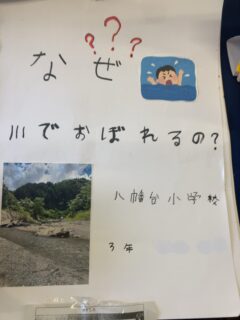 ???
なぜ
川でおぼれるの?
八幡台小学校
3年